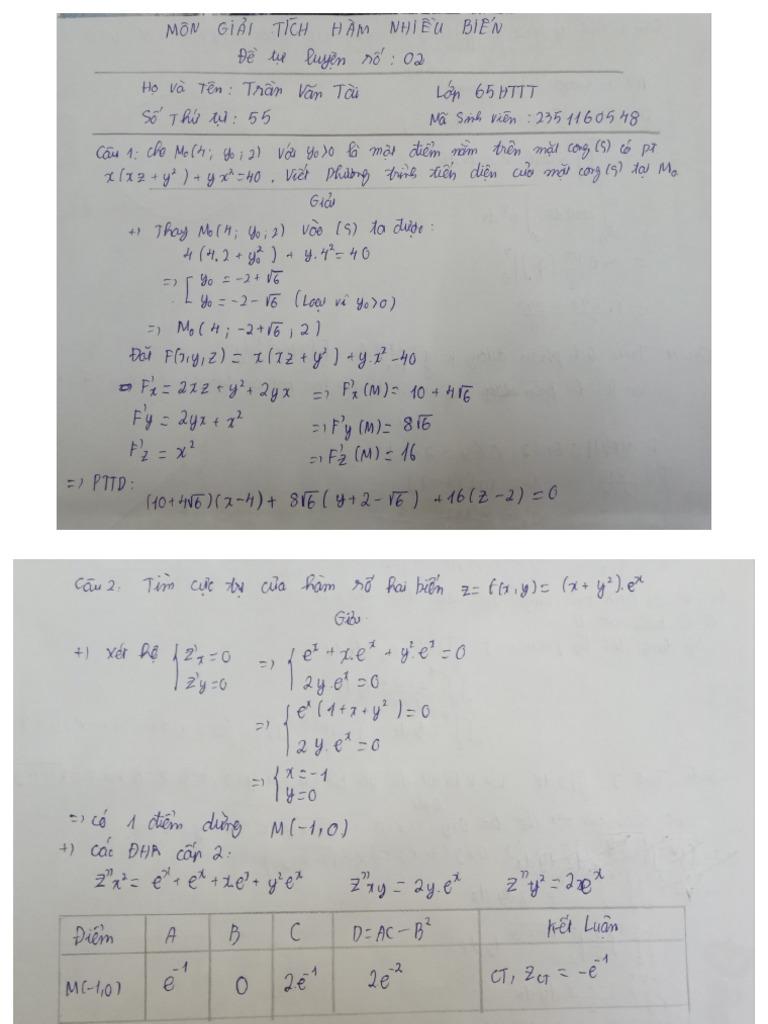 MÔN GIẢI TÍCH HÀM NHIỀU BIẾN
Đề tự luyện số: 02
Họ và Tên: Trần Văn Tài Lớp 65HTTT
Số Thứ tự: 55 Mã Sinh viên: 2351160548
Câu 1: Cho M₀(4; y₀; 2) với y₀>0 là một điểm nằm trên mặt cong (S) có pt
x(xz + y²) + yx² = 40. Viết phương trình tiếp diện của mặt cong (S) tại M₀
Giải
+) Thay M₀(4; y₀; 2) vào (S) ta được:
4(4.2 + y₀²) + y.4² = 40
=> [ y₀ = -2 + √6
y₀ = -2 - √6 (Loại vì y₀>0)
=> M₀(4; -2+√6; 2)
Đặt F(x,y,z) = x(xz + y²) + y.x² - 40
F'x = 2xz + y² + 2yx => F'x(M) = 10 + 4√6
F'y = 2yx + x² => F'y(M) = 8√6
F'z = x² => F'z(M) = 16
=> PTTD:
(10+4√6)(x-4) + 8√6(y+2-√6) + 16(z-2) = 0
Câu 2: Tìm cực trị của hàm số hai biến z = f(x,y) = (x + y²).eˣ
Giải
+) Xét hệ { z'x = 0 => { eˣ + x.eˣ + y².eˣ = 0
z'y = 0 2y.eˣ = 0
=> { eˣ(1+x+y²) = 0
2y.eˣ = 0
=> { x = -1
y = 0
=> Có 1 điểm dừng M(-1,0)
+) Các ĐHR cấp 2:
z''x² = eˣ + eˣ + x.eˣ + y²eˣ z''xy = 2y.eˣ z''y² = 2eˣ
Điểm A B C D = AC - B² Kết Luận
M(-1,0) e⁻¹ 0 2.e⁻¹ 2e⁻² CT, z_CT = -e⁻¹